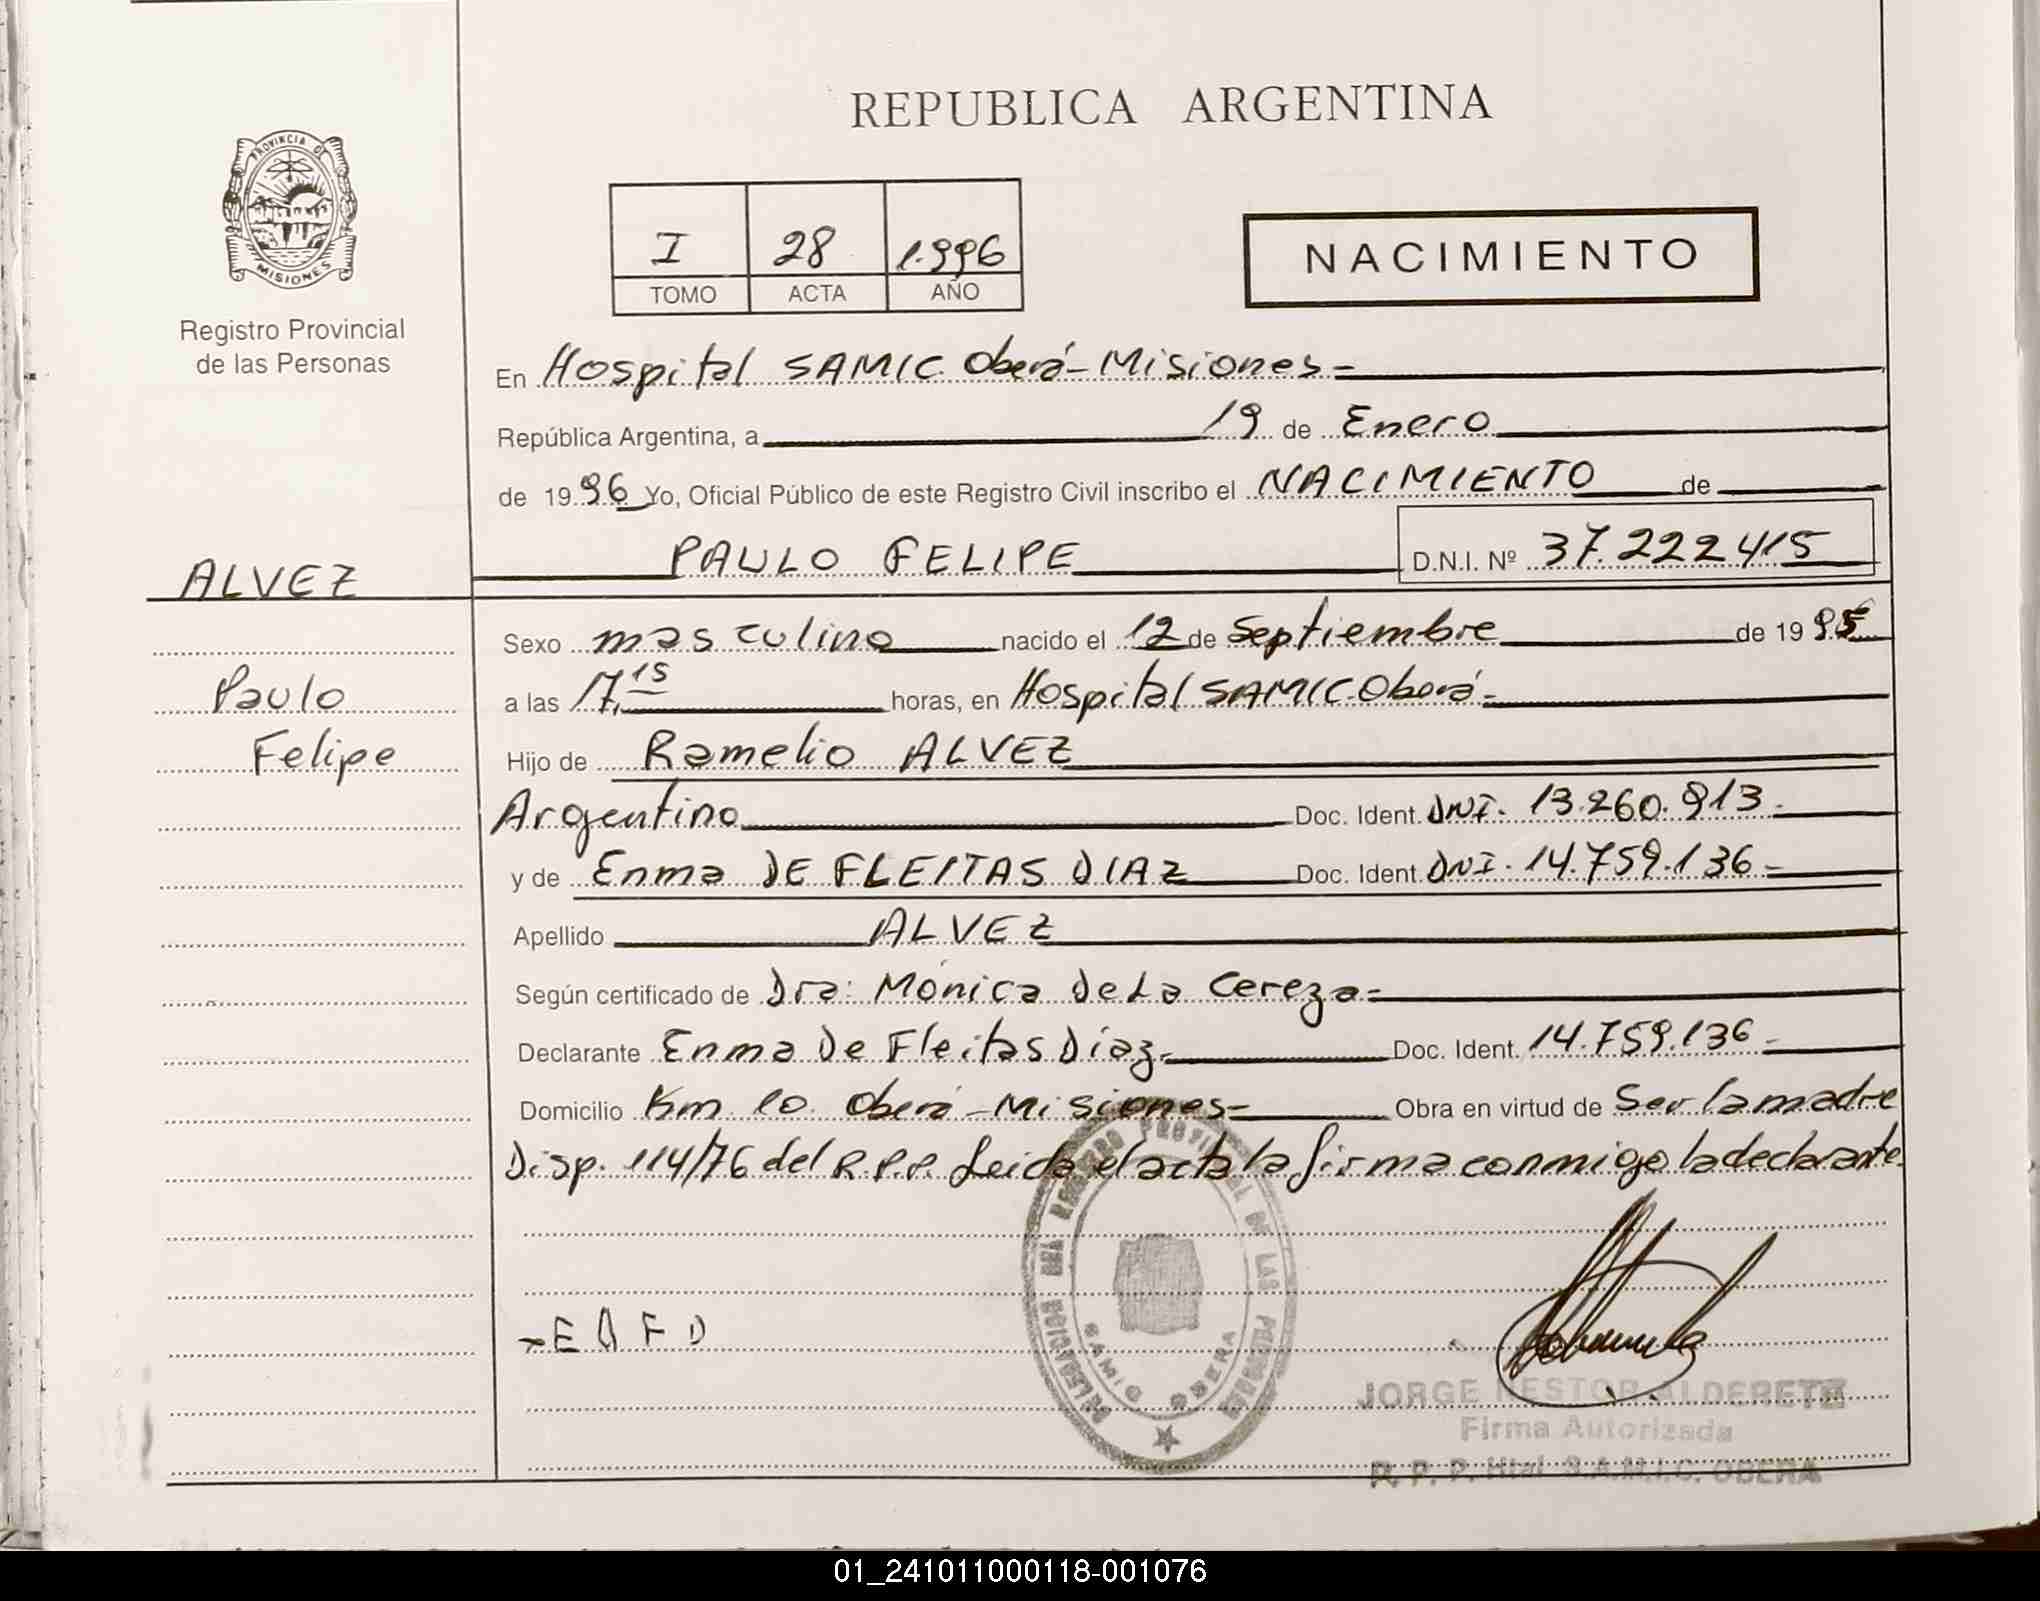 REPUBLICA ARGENTINA
PROVINCIA DE
MISIONES
Registro Provincial
de las Personas
I 28 1.996
TOMO ACTA AÑO
NACIMIENTO
En Hospital SAMIC. Oberá - Misiones =
República Argentina, a 19 de Enero
de 1996 Yo, Oficial Público de este Registro Civil inscribo el NACIMIENTO de
ALVEZ
PAULO FELIPE D.N.I. Nº 37.222.415
Sexo masculino nacido el 12 de Septiembre de 1995
Paulo
a las 17,15 horas, en Hospital SAMIC. Oberá =
Felipe
Hijo de Ramelio ALVEZ
Argentino Doc. Ident. DNI. 13.260.913 =
y de Enma DE FLEITAS DIAZ Doc. Ident. DNI. 14.759.136 =
Apellido ALVEZ
Según certificado de Dra: Mónica De La Cereza =
Declarante Enma De Fleitas Díaz = Doc. Ident. 14.759.136 =
Domicilio Km 10. Oberá - Misiones = Obra en virtud de Ser la madre
Disp. 114/76 del R.P.P. Leida el acta la firma conmigo la declarante.
DELEGACION DEL REGISTRO PROVINCIAL DE LAS PERSONAS
SAMIC OBERA
E D F D
JORGE NESTOR ALDERETE
Firma Autorizada
R. P. P. Htal S.A.M.I.C. OBERA
01_241011000118-001076